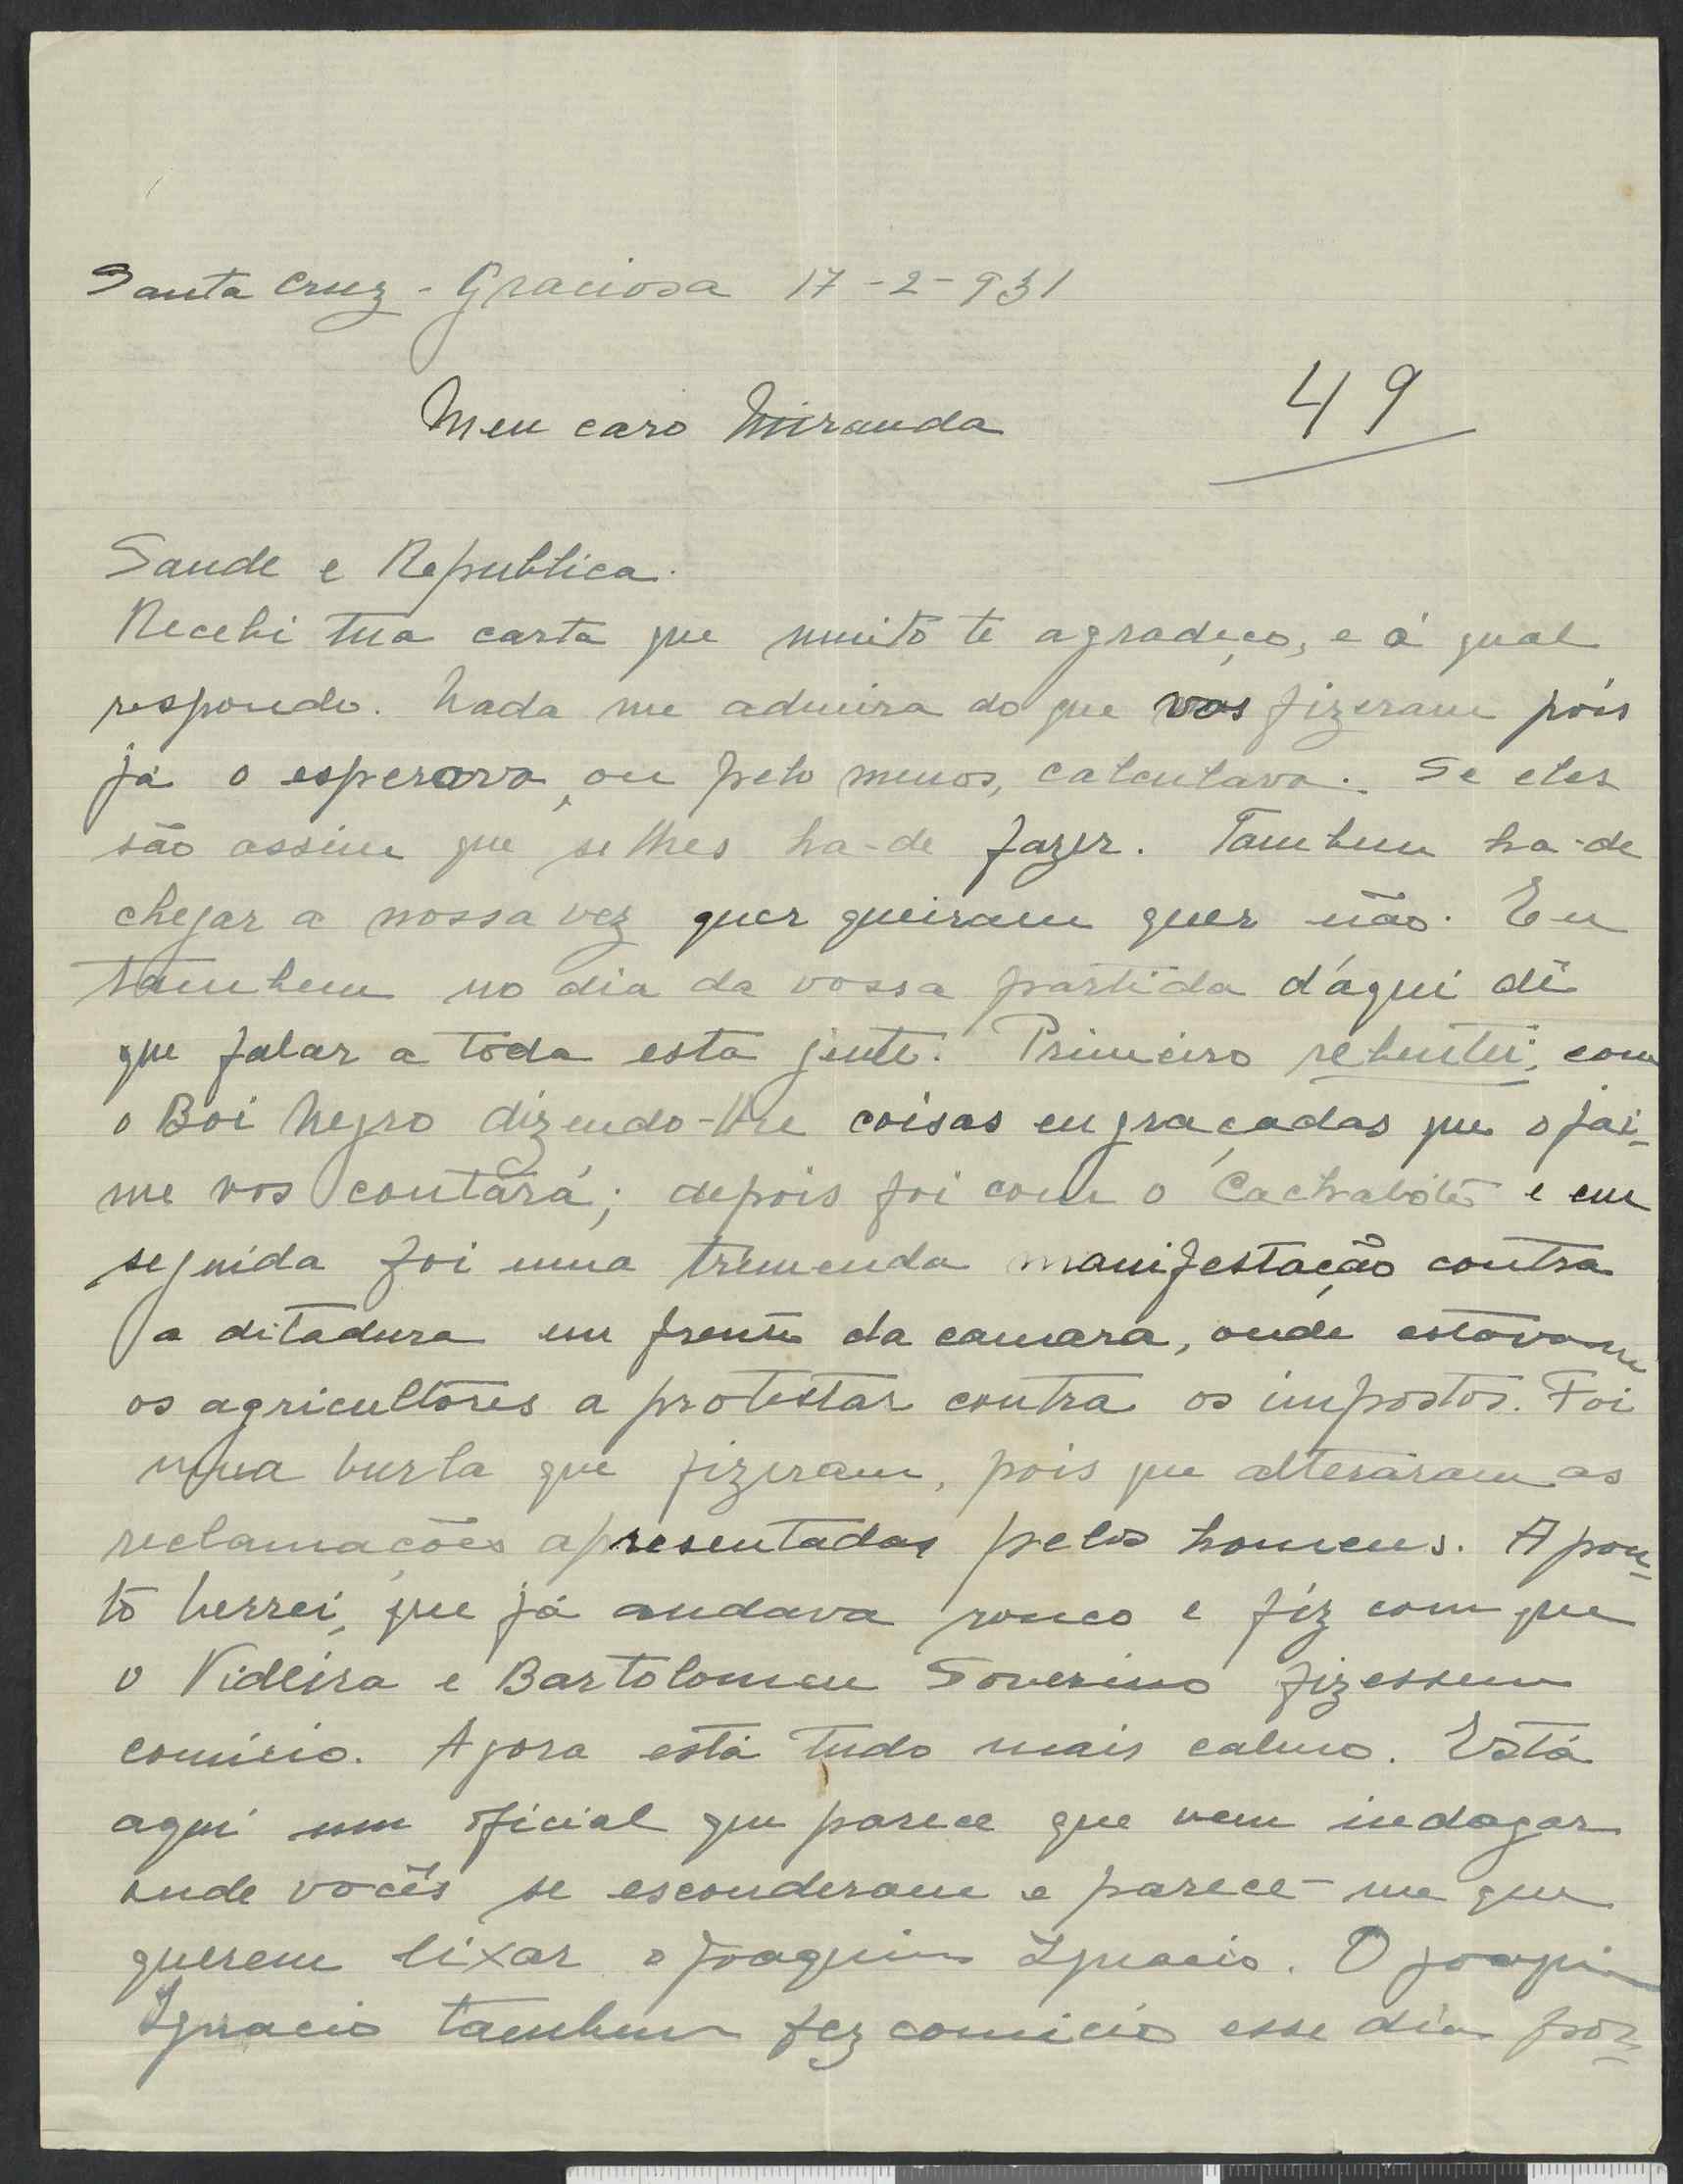 Santa Cruz - Graciosa 17-2-931
Meu caro Miranda
49
Saude e Republica.
Recebi tua carta que muito te agradeço, e á qual
respondo. Nada me admira do que vos fizeram póis
já o esperava, ou pelo menos, calculava. Se eles
são assim que se lhes ha-de fazer. Tambem ha-de
chegar a nossa vez quer queiram quer não. Eu
tambem no dia da vossa partida d'áqui dei
que falar a toda esta gente. Primeiro rebentei, com
o Boi Negro dizendo-lhe coisas engraçadas que o Jai-
me vos contará; depois foi com o e em
seguida foi uma tremenda manifestação contra
a ditadura em frente da camara, onde estavam
os agricultores a protestar contra os impostos. Foi
uma burla que fizeram, pois que alteraram as
reclamações apresentadas pelos homens. A pon-
to berrei, que já andava rouco e fiz com que
o Videira e Bartolomeu Soverino fizessem
comicio. Agora está tudo mais calmo. Está
aqui um oficial que parece que vem indagar
onde vocês se esconderam e parece-me que
querem lixar o Joaquim Ignacio. O Joaquim
Ignacio tambem fez comicio esse dia por-